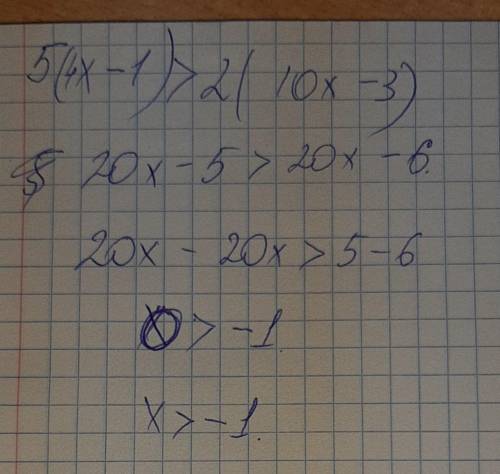 5(4x - 1) > 2(10x - 3)
20x - 5 > 20x - 6.
20x - 20x > 5 - 6
0 > -1.
x > -1.